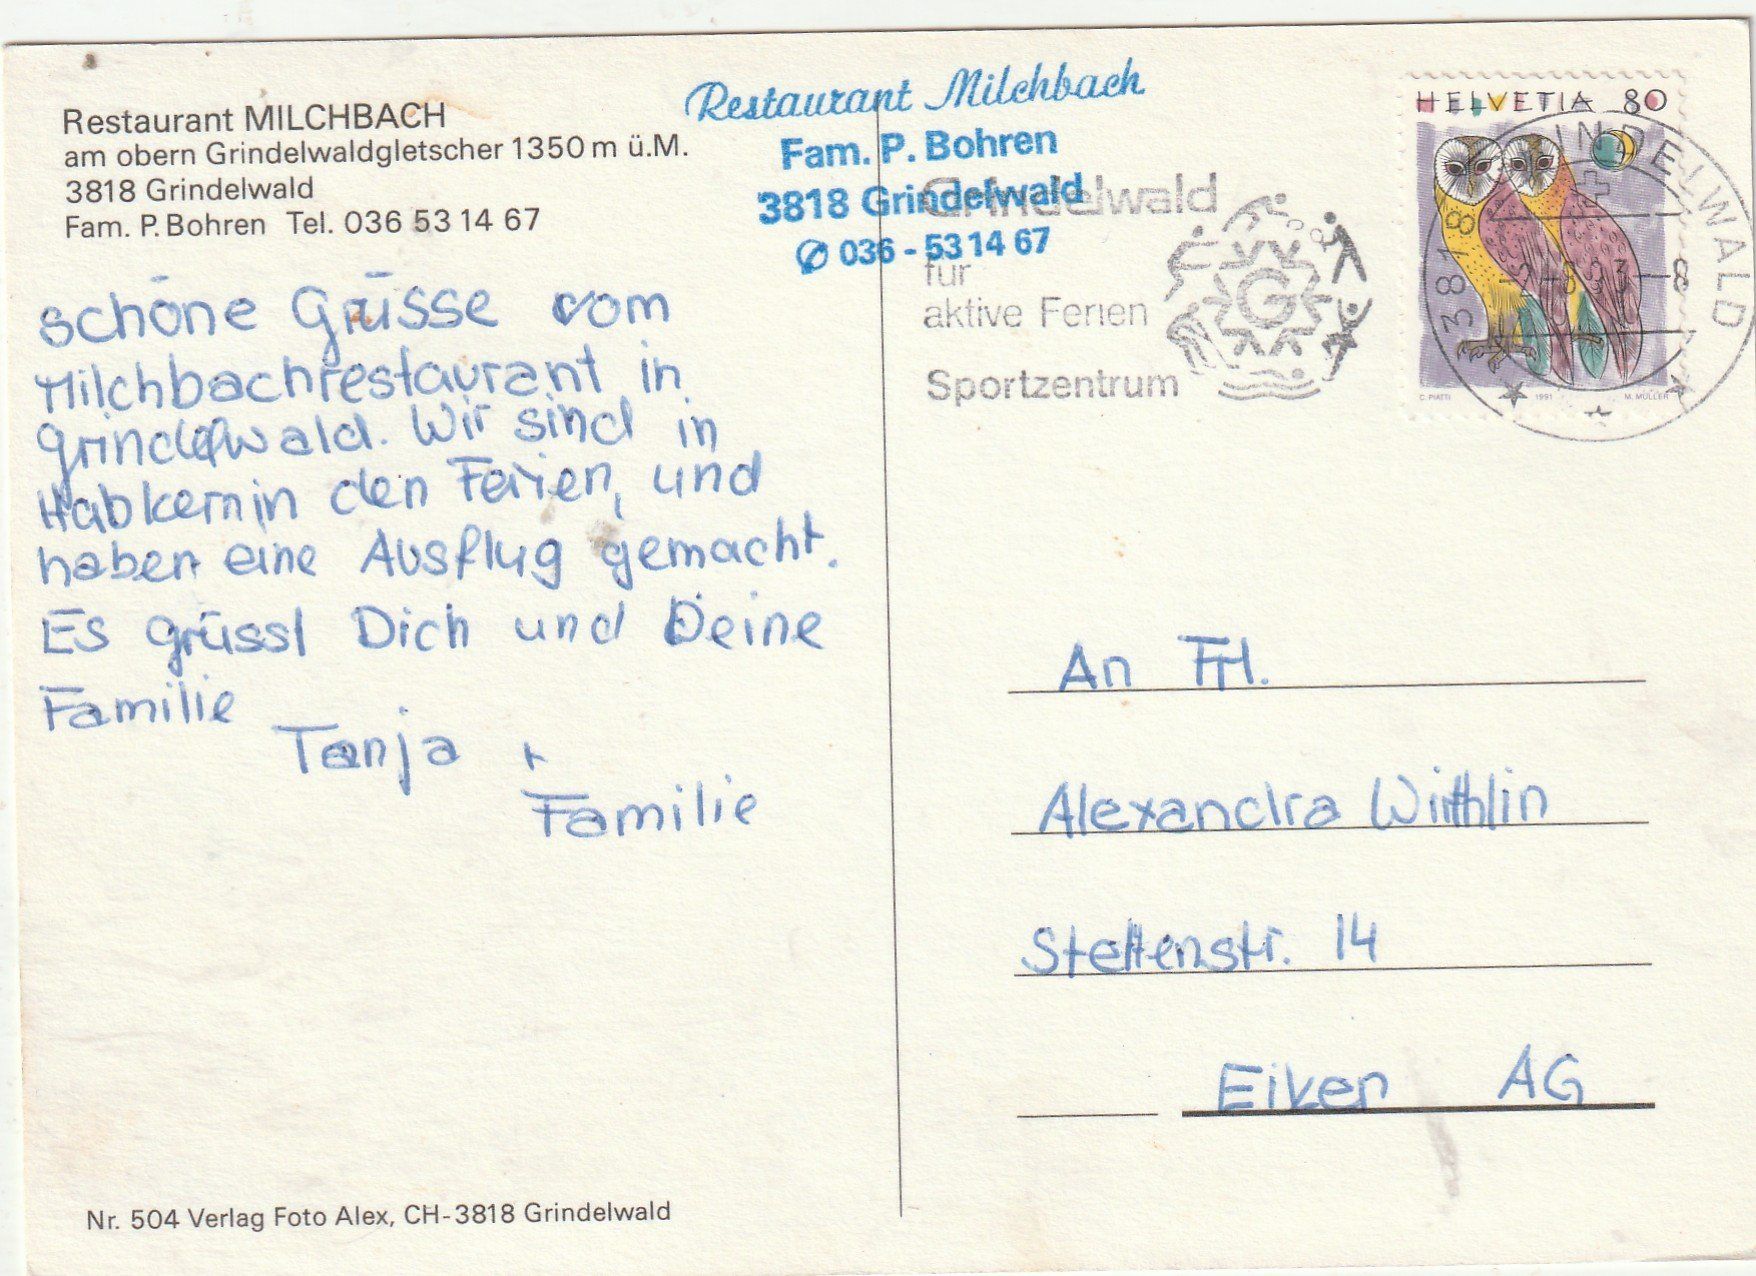 Restaurant MILCHBACH
am obern Grindelwaldgletscher 1350 m ü.M.
3818 Grindelwald
Fam. P. Bohren Tel. 036 53 14 67
Restaurant Milchbach
Fam. P. Bohren
3818 Grindelwald
✆ 036 - 53 14 67
Grindelwald
für
aktive Ferien
Sportzentrum
G
HELVETIA 80
C. PIATTI 1991 M. MÜLLER
3818 GRINDELWALD
schöne Grüsse vom
Milchbachrestaurant in
grindelwald. Wir sind in
Habkern in den Ferien, und
haben eine Ausflug gemacht.
Es grüsst Dich und Deine
Familie
Tanja +
Familie
An Frl.
Alexandra Wirthlin
Stettenstr. 14
Eiken AG
Nr. 504 Verlag Foto Alex, CH-3818 Grindelwald